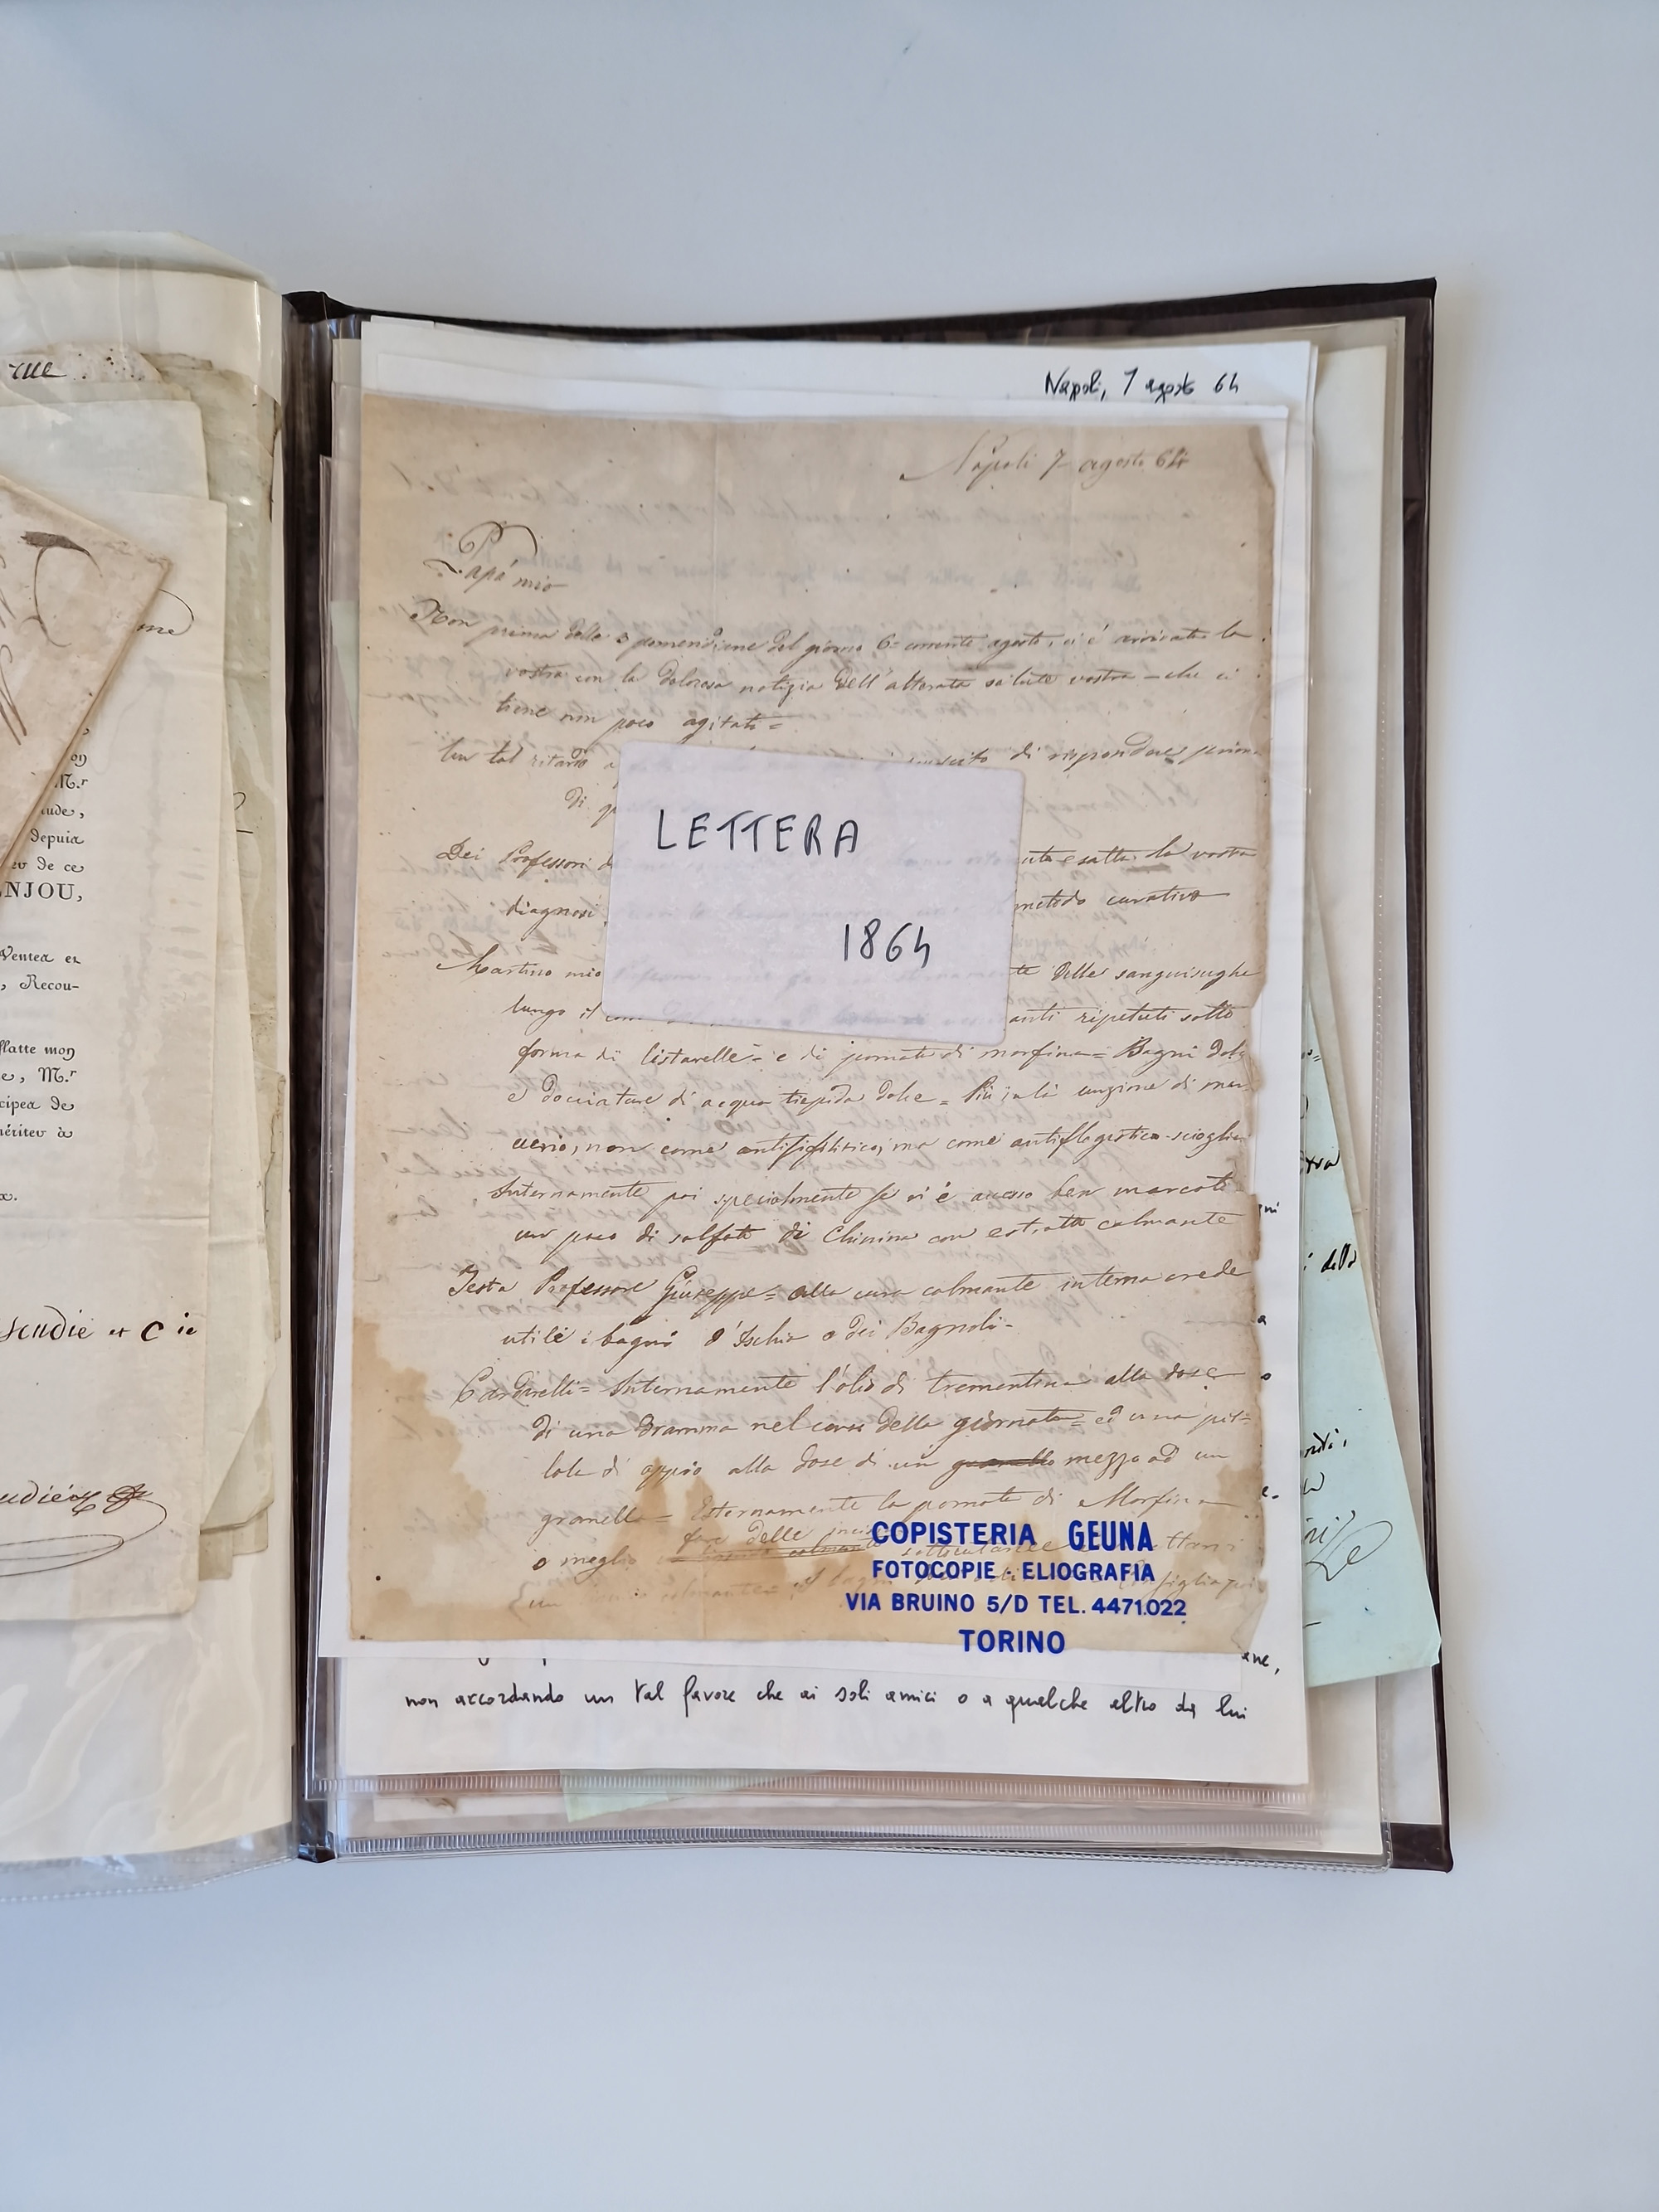 rue
me
on
M.r
tude,
depuis
ev de ce
NJOU,
Ventes et
, Recou-
flatte mon
e, M.r
cipes de
mériter à
x.
scudié et C ie
udié
Napoli, 7 agosto 64
Napoli 7 agosto 64
Papá mio
Non prima delle 3 pomeridiane del giorno 6 = corrente agosto, ci é arrivata la
vostra con la dolorosa notizia dell'alterata salute vostra - che ci
tiene non poco agitati =
Un tal ritardo a di rispondere prima
di qu
Dei Professori d esatta la vostra
diagnosi metodo curativo
Martino mio te delle sanguisughe
lungo il anti ripetuti sotto
forma di listarelle = e di pomata di morfina = Bagni dolc
e docciature di acqua tiepida dolce = Più in là unzione di mer
curio, non come antisifilitico, ma come antiflogistico-scioglien
Internamente poi specialmente se vi é accesso ben marcato
un poco di solfato di Chinina con estratto calmante
Testa Professore Giuseppe = alla cura calmante interna crede
utile i bagni d'Ischia o dei Bagnoli -
Cardarelli = Internamente l'olio di trementina alla dose
di una dramma nel corso della giornata = ed una pil=
lola di oppio alla dose di un granello mezzo ad un
granello = Esternamente la pomata di Morfina
fare delle
o meglio calmante sottocutanee ettarvi
un calmante =
LETTERA
1864
COPISTERIA GEUNA
FOTOCOPIE - ELIOGRAFIA
VIA BRUINO 5/D TEL. 4471.022
TORINO
ene,
non accordando un tal favore che ai soli amici o a qualche altro da lui
della